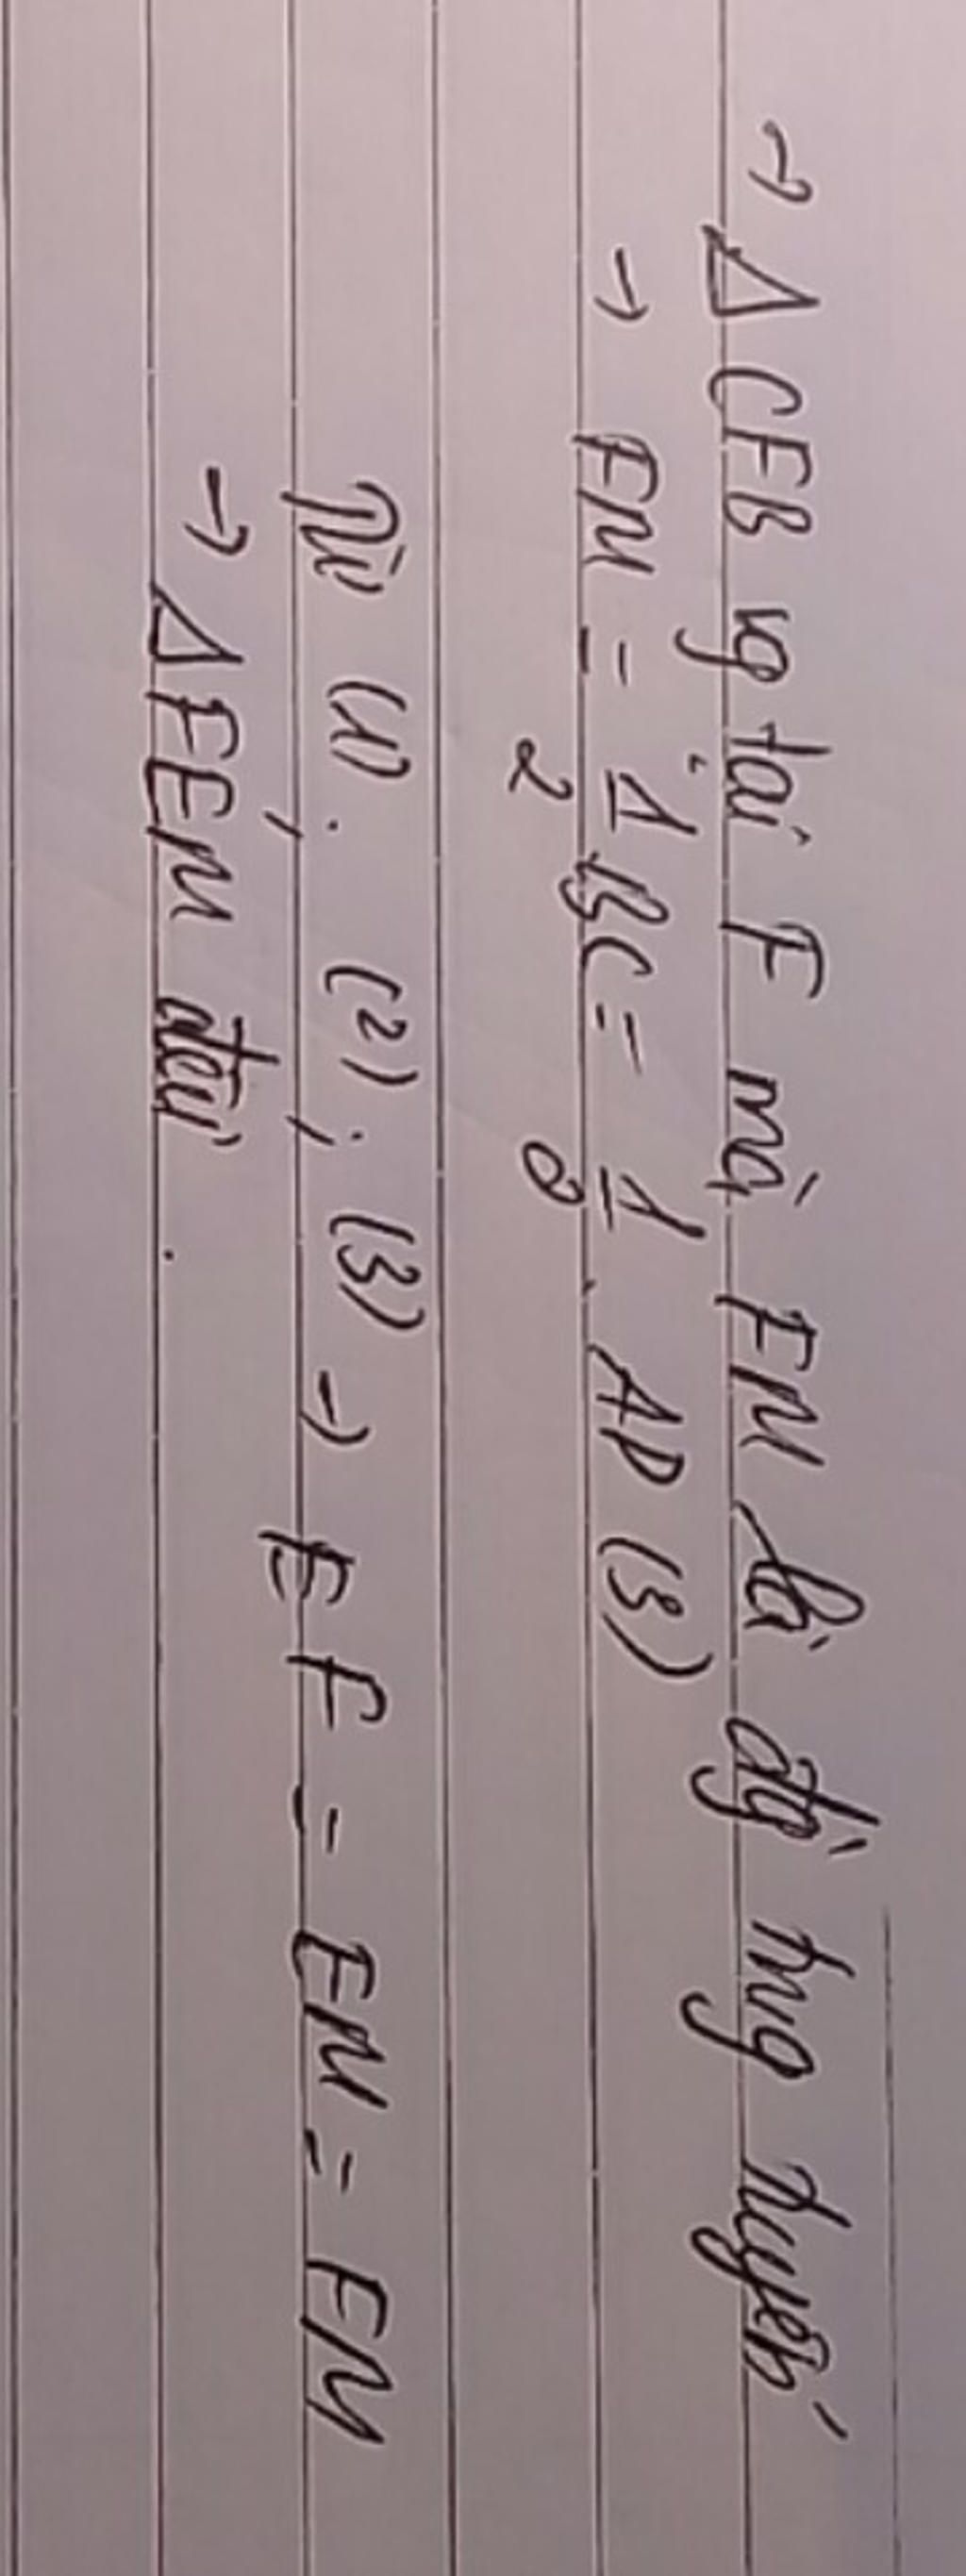 → Δ CFB vg tại F mà FM là đg trug tuyến
→ FM = 1/2 BC = 1/2 . AD (3)
Từ (1); (2); (3) → EF = EM = FM
→ Δ FEM đều.